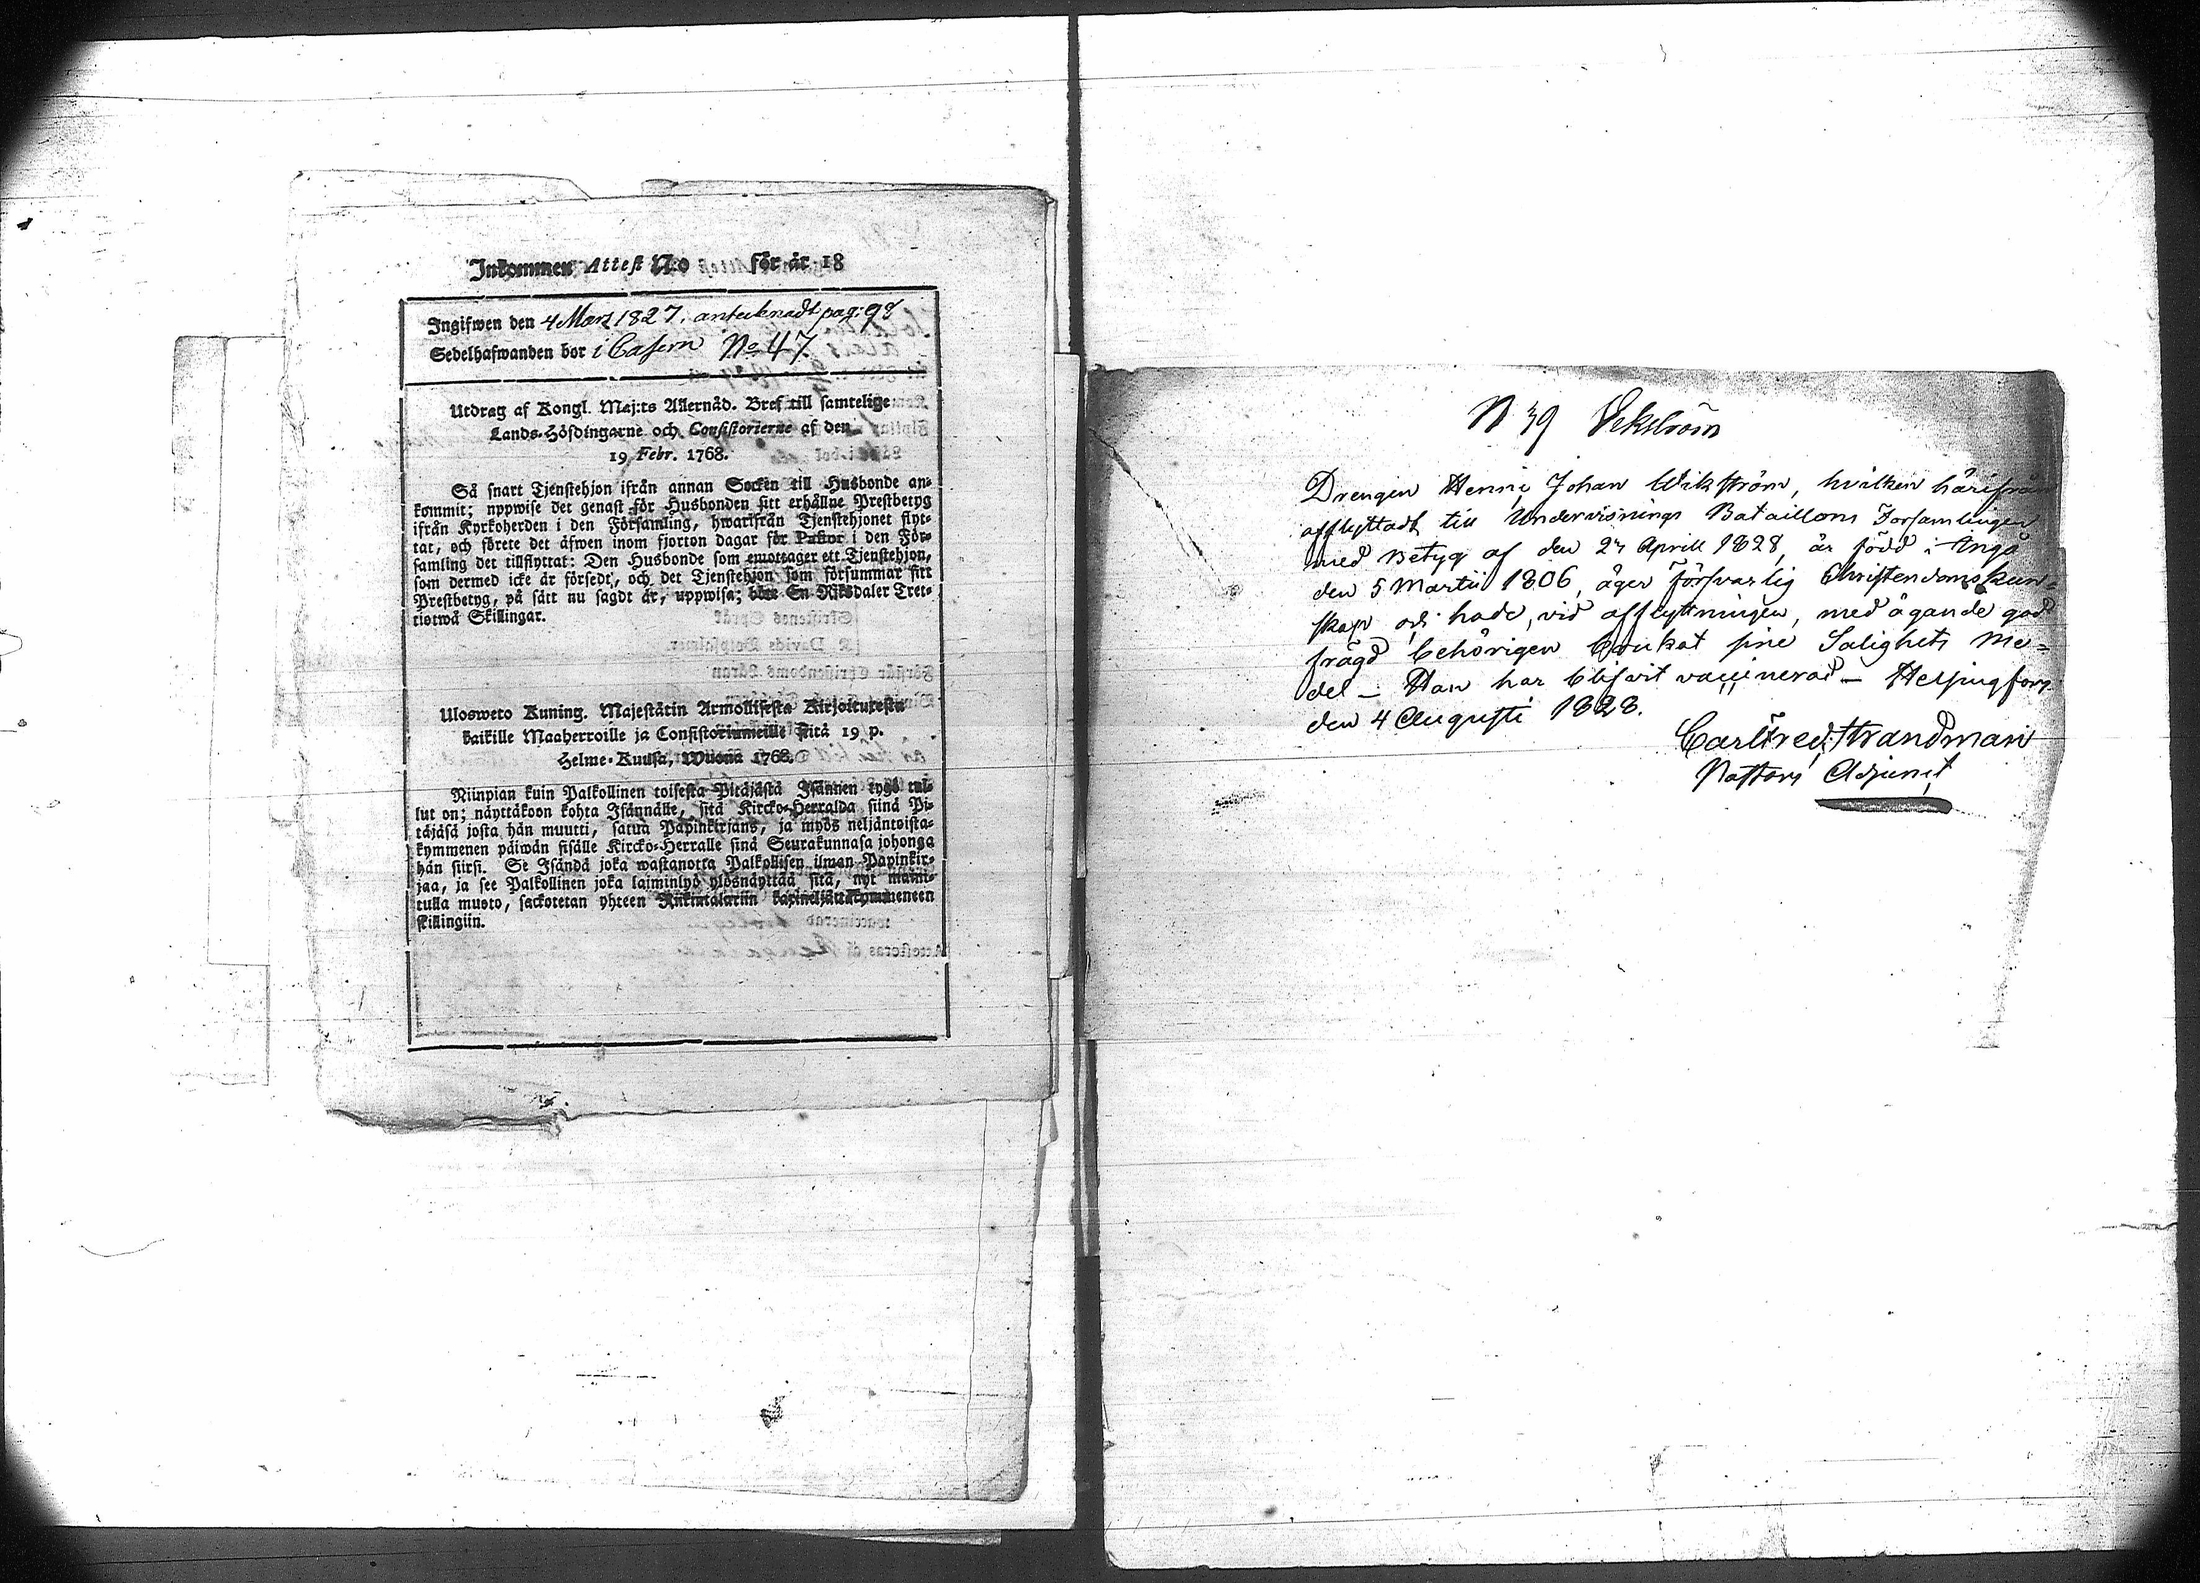 Inkommen Attest N:o för år 18
Ingifwen den 4 Mars 1827. antecknadt pag: 98
Sedelhafwanden bor i Casern No 47
Utdrag af Kongl. Maj:ts Allernåd. Bref till samtelige
Lands-Höfdingarne och Consistorierne af den
19 Febr. 1768.
Så snart Tjenstehjon ifrån annan Socken till Husbonde an-
kommit; uppwise det genast för Husbonden sitt erhållne Prestbetyg
ifrån Kyrkoherden i den Församling, hwarifrån Tjenstehjonet flyt-
tat, och förete det äfwen inom fjorton dagar för Pastor i den För-
samling det tillflyttat: Den Husbonde som emottager ett Tjenstehjon,
som dermed icke är försedt, och det Tjenstehjon som försummar sitt
Prestbetyg, på sätt nu sagdt är, uppwisa; böte En Riksdaler Tret-
tiotwå Skillingar.
Ulosweto Kuning. Majestätin Armollisesta Kirjoituxesta
kaikille Maaherroille ja Consistoriumeille siitä 19 p.
Helme-Kuusa, Wuona 1768.
Niinpian kuin Palkollinen toisesta Pitäjästä Isännen tygö tul-
lut on; näyttäkoon kohta Isännälle, sitä Kircko-Herralda siinä Pi-
täjäsä josta hän muutti, saatua Papinkirjans, ja myös neljäntoista-
kymmenen päiwän sisälle Kircko-Herralle sinä Seurakunnasa johonga
hän siirsi. Se Isändä joka wastanotta Palkollisen ilman Papinkir-
jaa, ja see Palkollinen joka laiminlyö ylösnäyttää sitä, nyt maini-
tulla muoto, sackotetan yhteen Rikintalariin kaxineljättäkymmeneen
skillingiin.
N 39 Vekström
Drengen Henric Johan Wikström, hvilken härifrån
afflyttadt till Undervisnings Bataillons Församlingen
med Betyg af den 24 Aprill 1828, är född i Ingå
den 5 Martii 1806, äger försvarlig Christendomskun-
skap och hade, vid afflyttningen, med ägande god
frägd behörigen brukat sine Salighets Me-
del – Han har blifvit vaccinerad – Helsingfors
den 4 Augusti 1828.
Carl Fred. Strandman
Pastors Adjunct